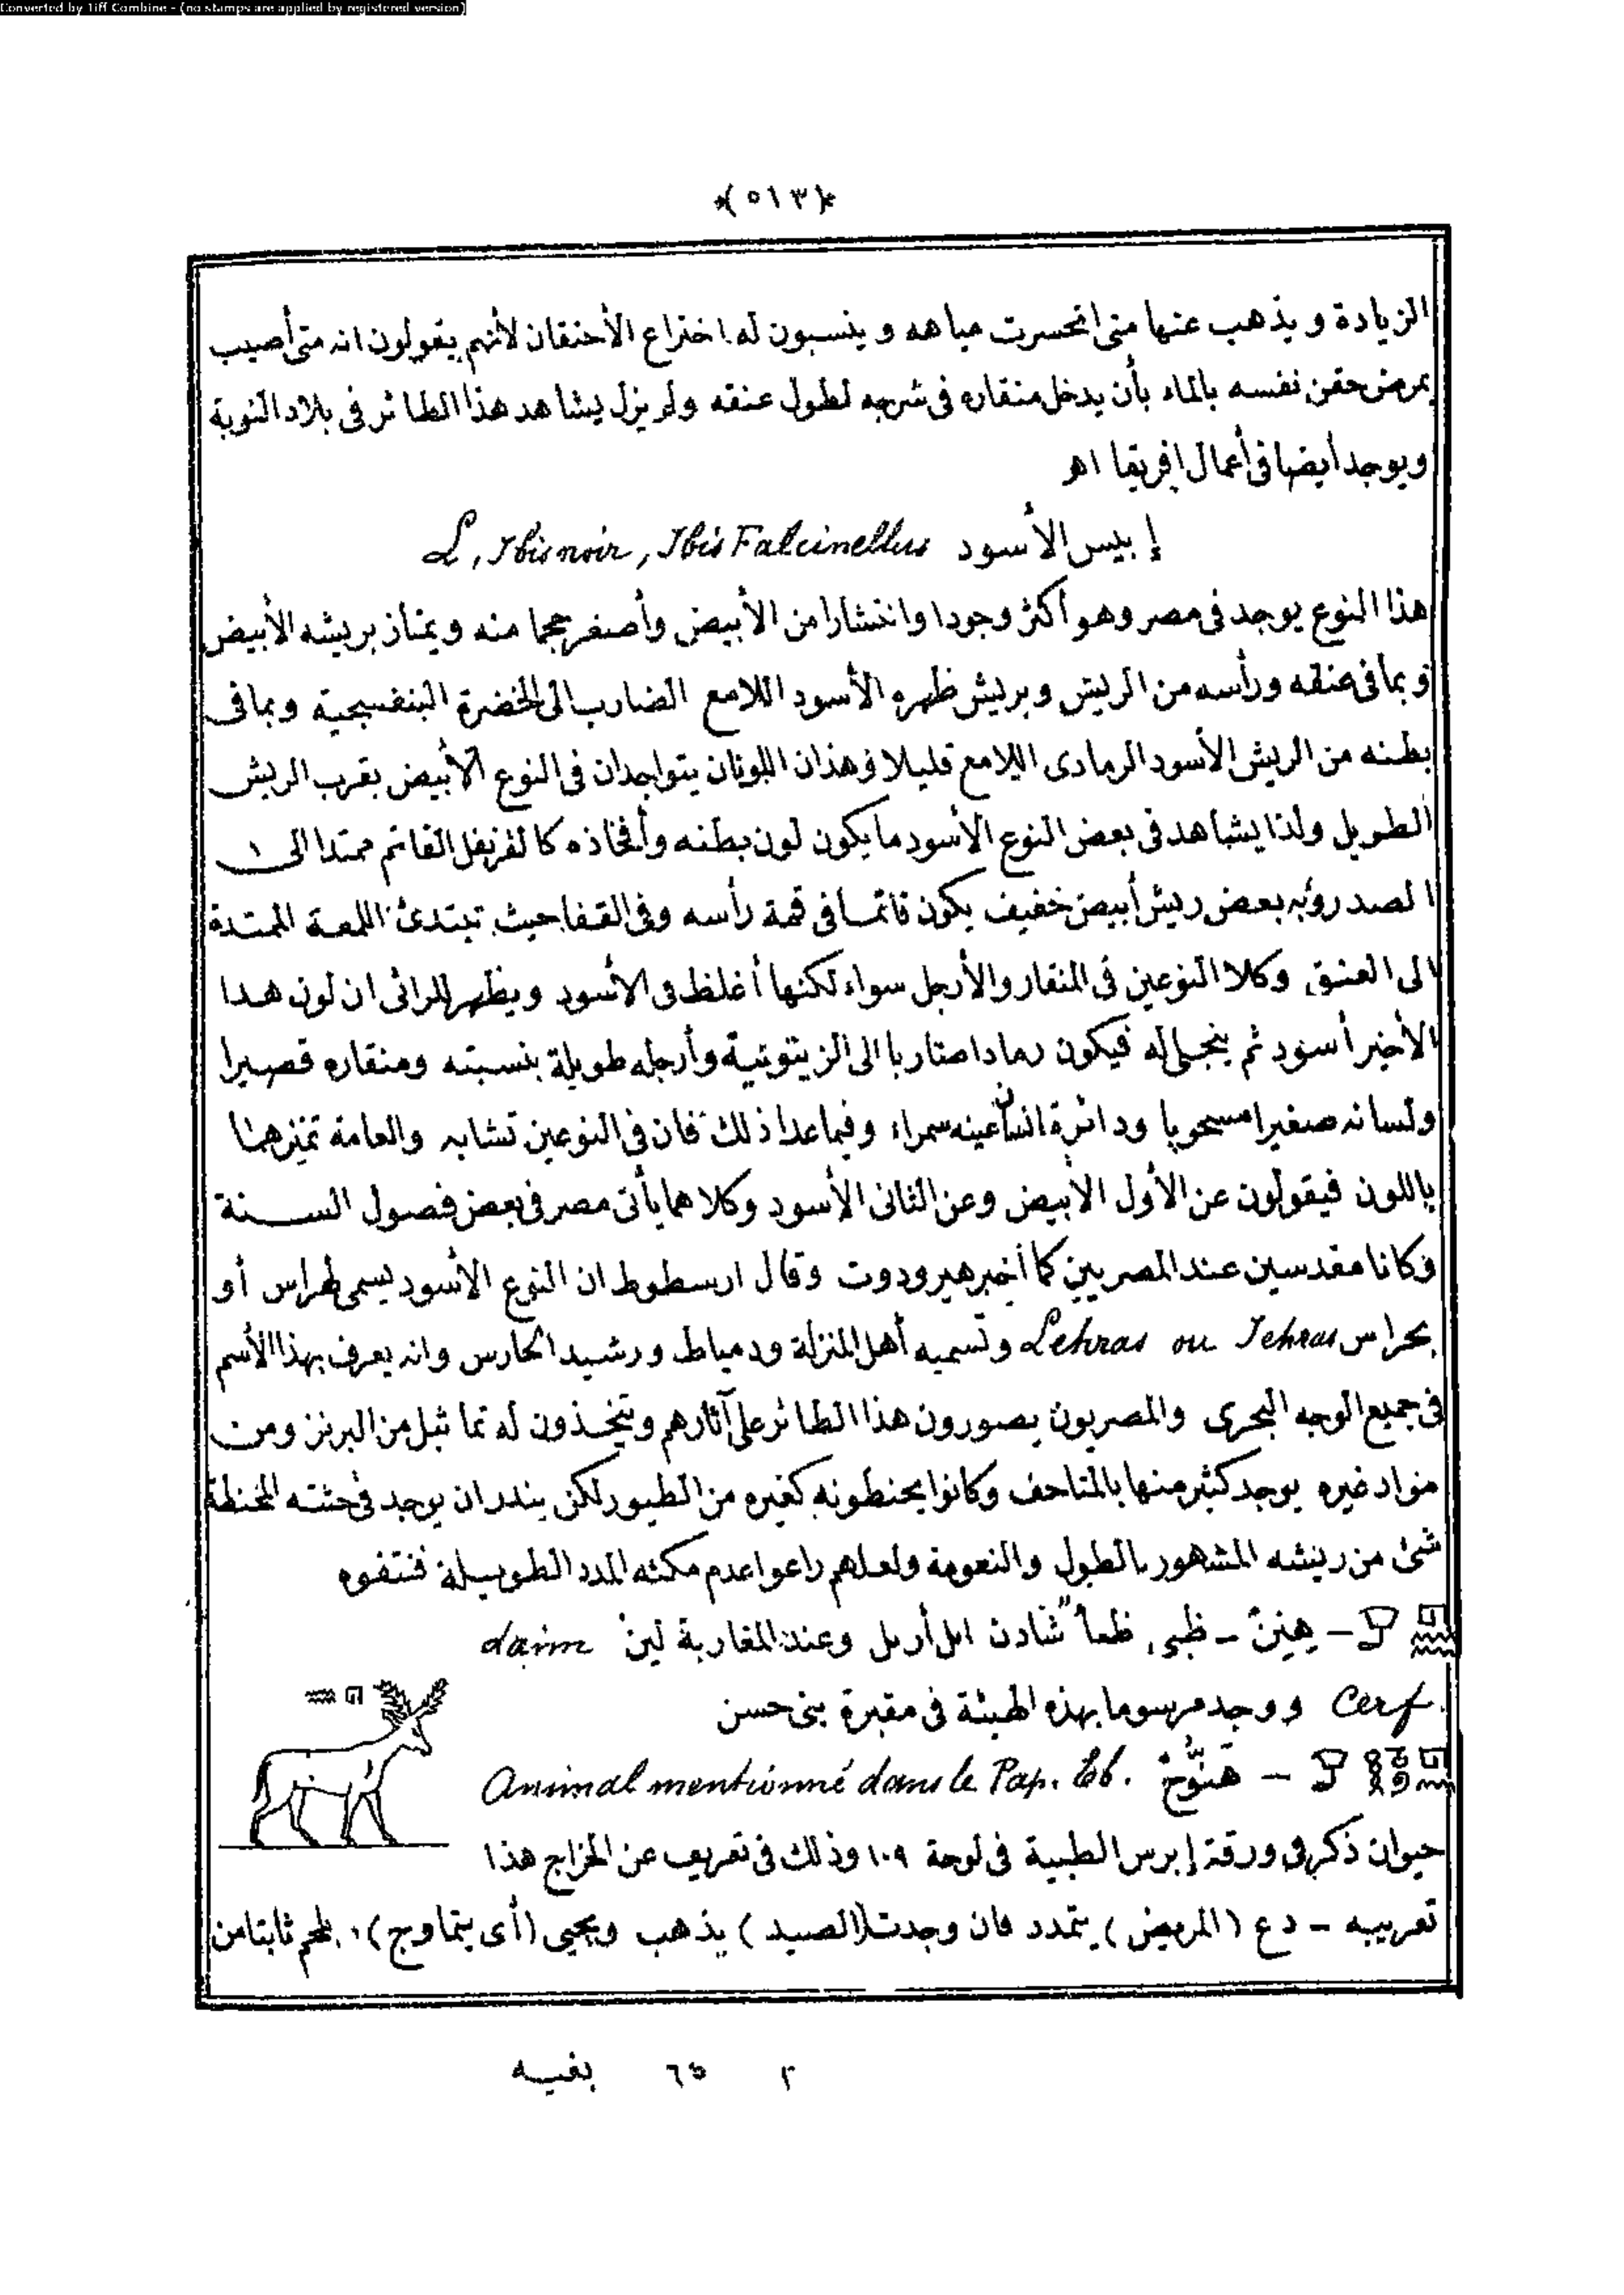 Converted by Tiff Combine - (no stamps are applied by registered version)
﴿٥١٣﴾
الزيادة ويذهب عنها متى انحسرت مياهه وينسبون له اختراع الأحتقان لأنهم يقولون انه متى أصيب
بمرض حقن نفسه بالماء بأن يدخل منقاره فى شرجه لطول عنقه ولم يزل يشاهد هذا الطائر فى بلاد النوبة
ويوجد أيضا فى أعمال افريقا اهـ
إبيس الأسود L, Ibis noir, Ibis Falcinellus
هذا النوع يوجد فى مصر وهو أكثر وجودا وانتشارا من الأبيض وأصغر حجما منه ويمتاز بريشه الأبيض
وبما فى عنقه ورأسه من الريش وبريش ظهره الأسود اللامع الضارب الى الخضرة البنفسجية وبما فى
بطنه من الريش الأسود الرمادى اللامع قليلا وهذان اللونان يتواجدان فى النوع الأبيض بقرب الريش
الطويل ولذا يشاهد فى بعض النوع الأسود ما يكون لون بطنه وأفخاذه كالقرنفل القاتم ممتدا الى
الصدر وبه بعض ريش أبيض خفيف يكون قاتما فى قمة رأسه وفى القفا حيث تبتدئ اللمعة الممتدة
الى العنق وكلا النوعين فى المنقار والأرجل سواء لكنها أغلظ فى الأسود ويظهر للرائى ان لون هذا
الأخير أسود ثم ينجلى له فيكون رمادا ضاربا الى الزيتونية وأرجله طويلة بنسبته ومنقاره قصيرا
ولسانه صغيرا مسحوبا ودائرة انسان عينه سمراء وفيما عدا ذلك فان فى النوعين تشابه والعامة تميزهما
باللون فيقولون عن الأول الأبيض وعن الثانى الأسود وكلاهما يأتى مصر فى بعض فصول السنة
وكانا مقدسين عند المصريين كما أخبر هيرودوت وقال ارسطوط ان النوع الأسود يسمى لهراس أو
يحراس Lehras ou Iehras وتسميه أهل المنزلة ودمياط ورشيد الحارس وانه يعرف بهذا الأسم
فى جميع الوجه البحرى والمصريون يصورون هذا الطائر على آثارهم ويتخذون له تماثيل من البرنز ومن
مواد غيره يوجد كثير منها بالمتاحف وكانوا يحنطونه كغيره من الطيور لكن يندر ان يوجد فى جثته المحنطة
شئ من ريشه المشهور بالطول والنعومة ولعلهم راعوا عدم مكثه المدد الطويلة فنتفوه
– هِنِنْ – ظبى، شادن ايل أريل وعند المغاربة لين daim
Cerf ووجد مرسوما بهذه الهيئة فى مقبرة بنى حسن
– هَنُّوخْ Animal mentionné dans le Pap. Eb.
حيوان ذكر فى ورقة إبرس الطبية فى لوحة ١٠٩ وذلك فى تعريف عن الخراج هذا
تعريبه – دع (المريض) يتمدد فان وجدت (الصيد) يذهب ويجيى (أى يتماوج) ثابتا من
٢ ٦٥ بغيه